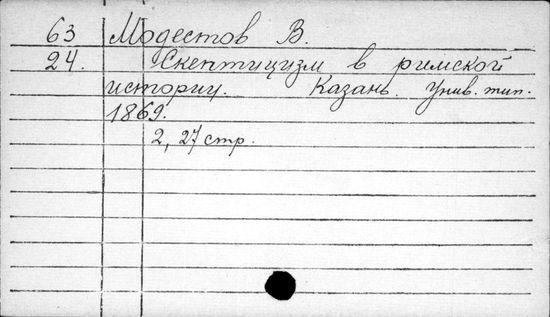 63 Модестов В.
24. Скептицизм в римской
истории. Казань. Унив. тип.
1869.
2, 27 стр.